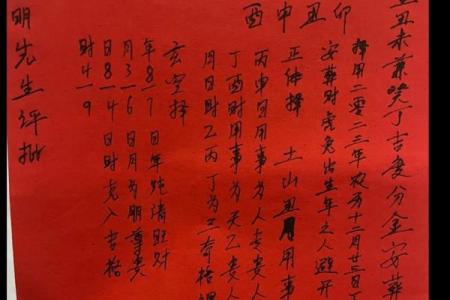 丑未兼癸丁吉度分金安葬
择用二零二三年农历十二月廿三日丁
卯丑申酉
安葬时虎兔出生年之人避开
正体择 土山丑月用事
丙申日用事为人专贵人
丁酉时用事为天乙贵人
月日时乙丙丁为三奇格
玄空择
年8-7 日年纯清旺财
月3-6 日月为朋尊贵
日8-4 日时克入吉格
时4-9
明先生评批